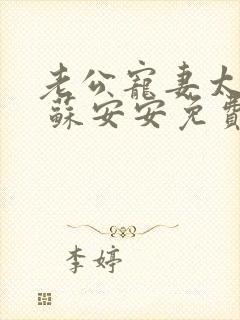 老公寵妻太
蘇安安免費
李婷